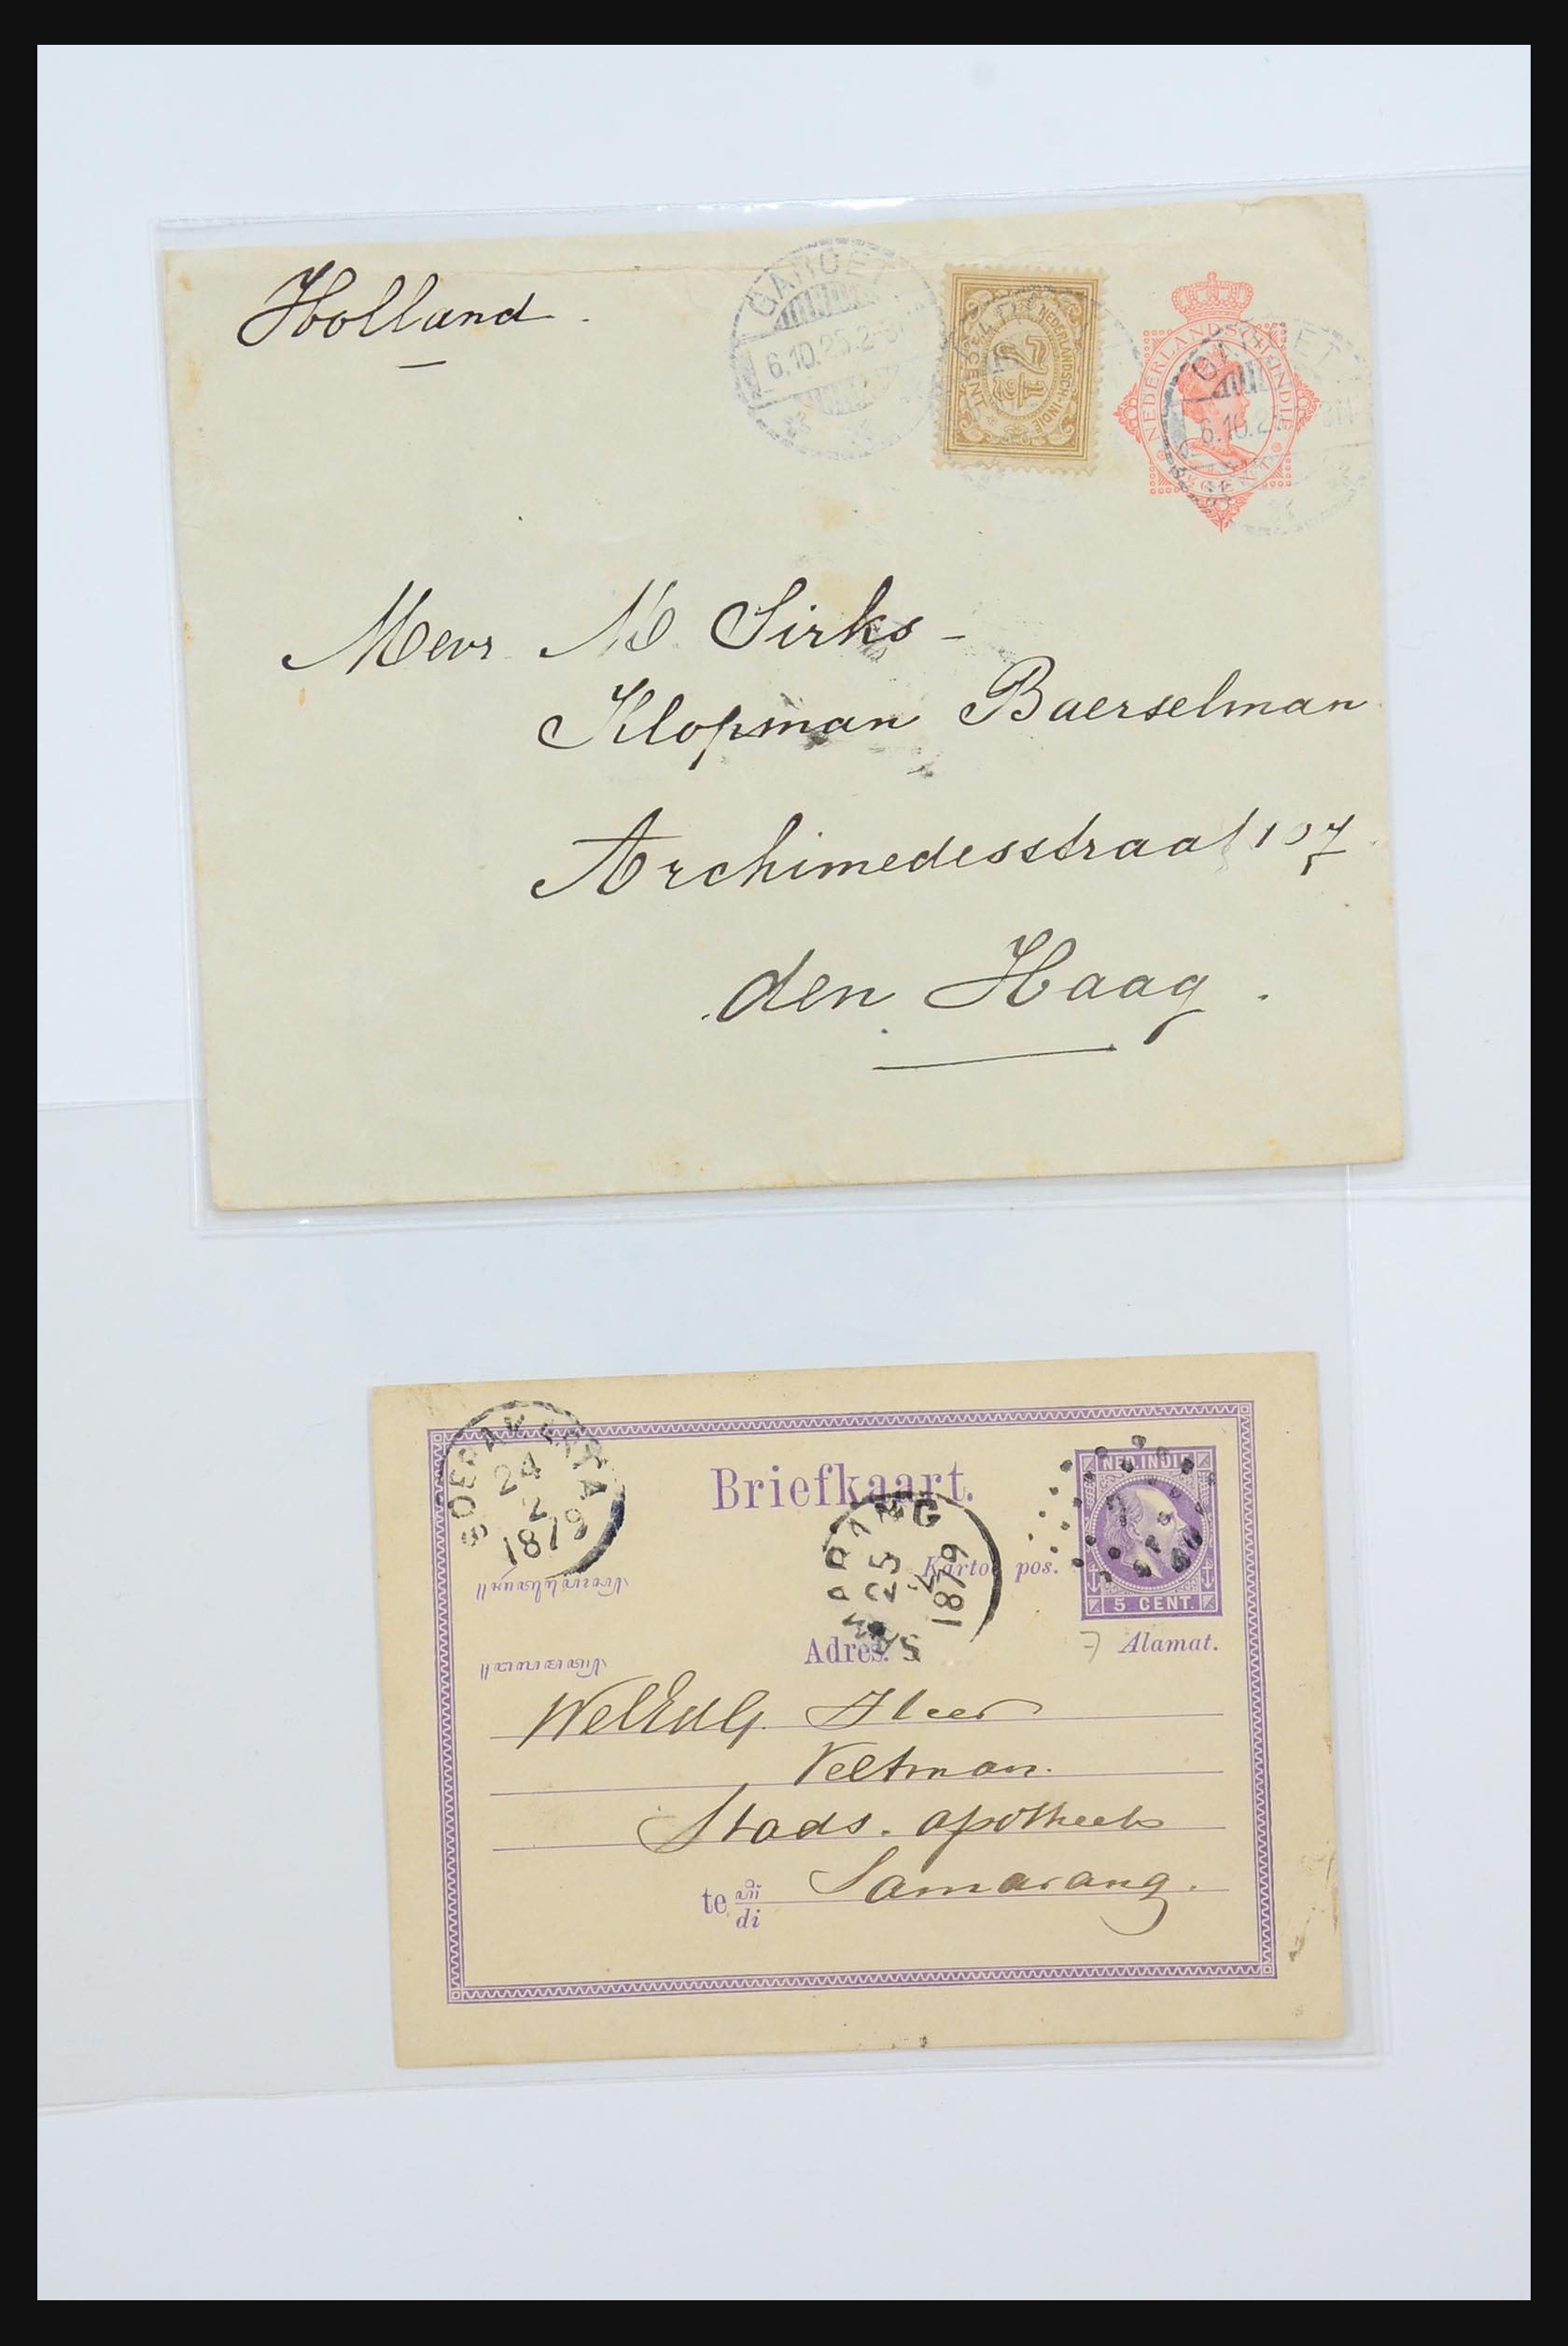 Holland.
GAROET
6.10.25.2-3N
NEDERLANDSCH-INDIE
7½
CENT
NEDERLANDSCH INDIE
CENT
GAROET
6.10.2
Mevr. M. Sirks-
Klopman Baerselman
Archimedesstraat 107.
den Haag.
SOERAKARTA
24
2
1879
Briefkaart.
NED. INDIE
5 CENT.
SAMARANG
25
2
1879
Kartoe pos.
Adres.
7 Alamat.
WelEdG. Heer
Veltman.
Stads. apotheek
Samarang.
te
di